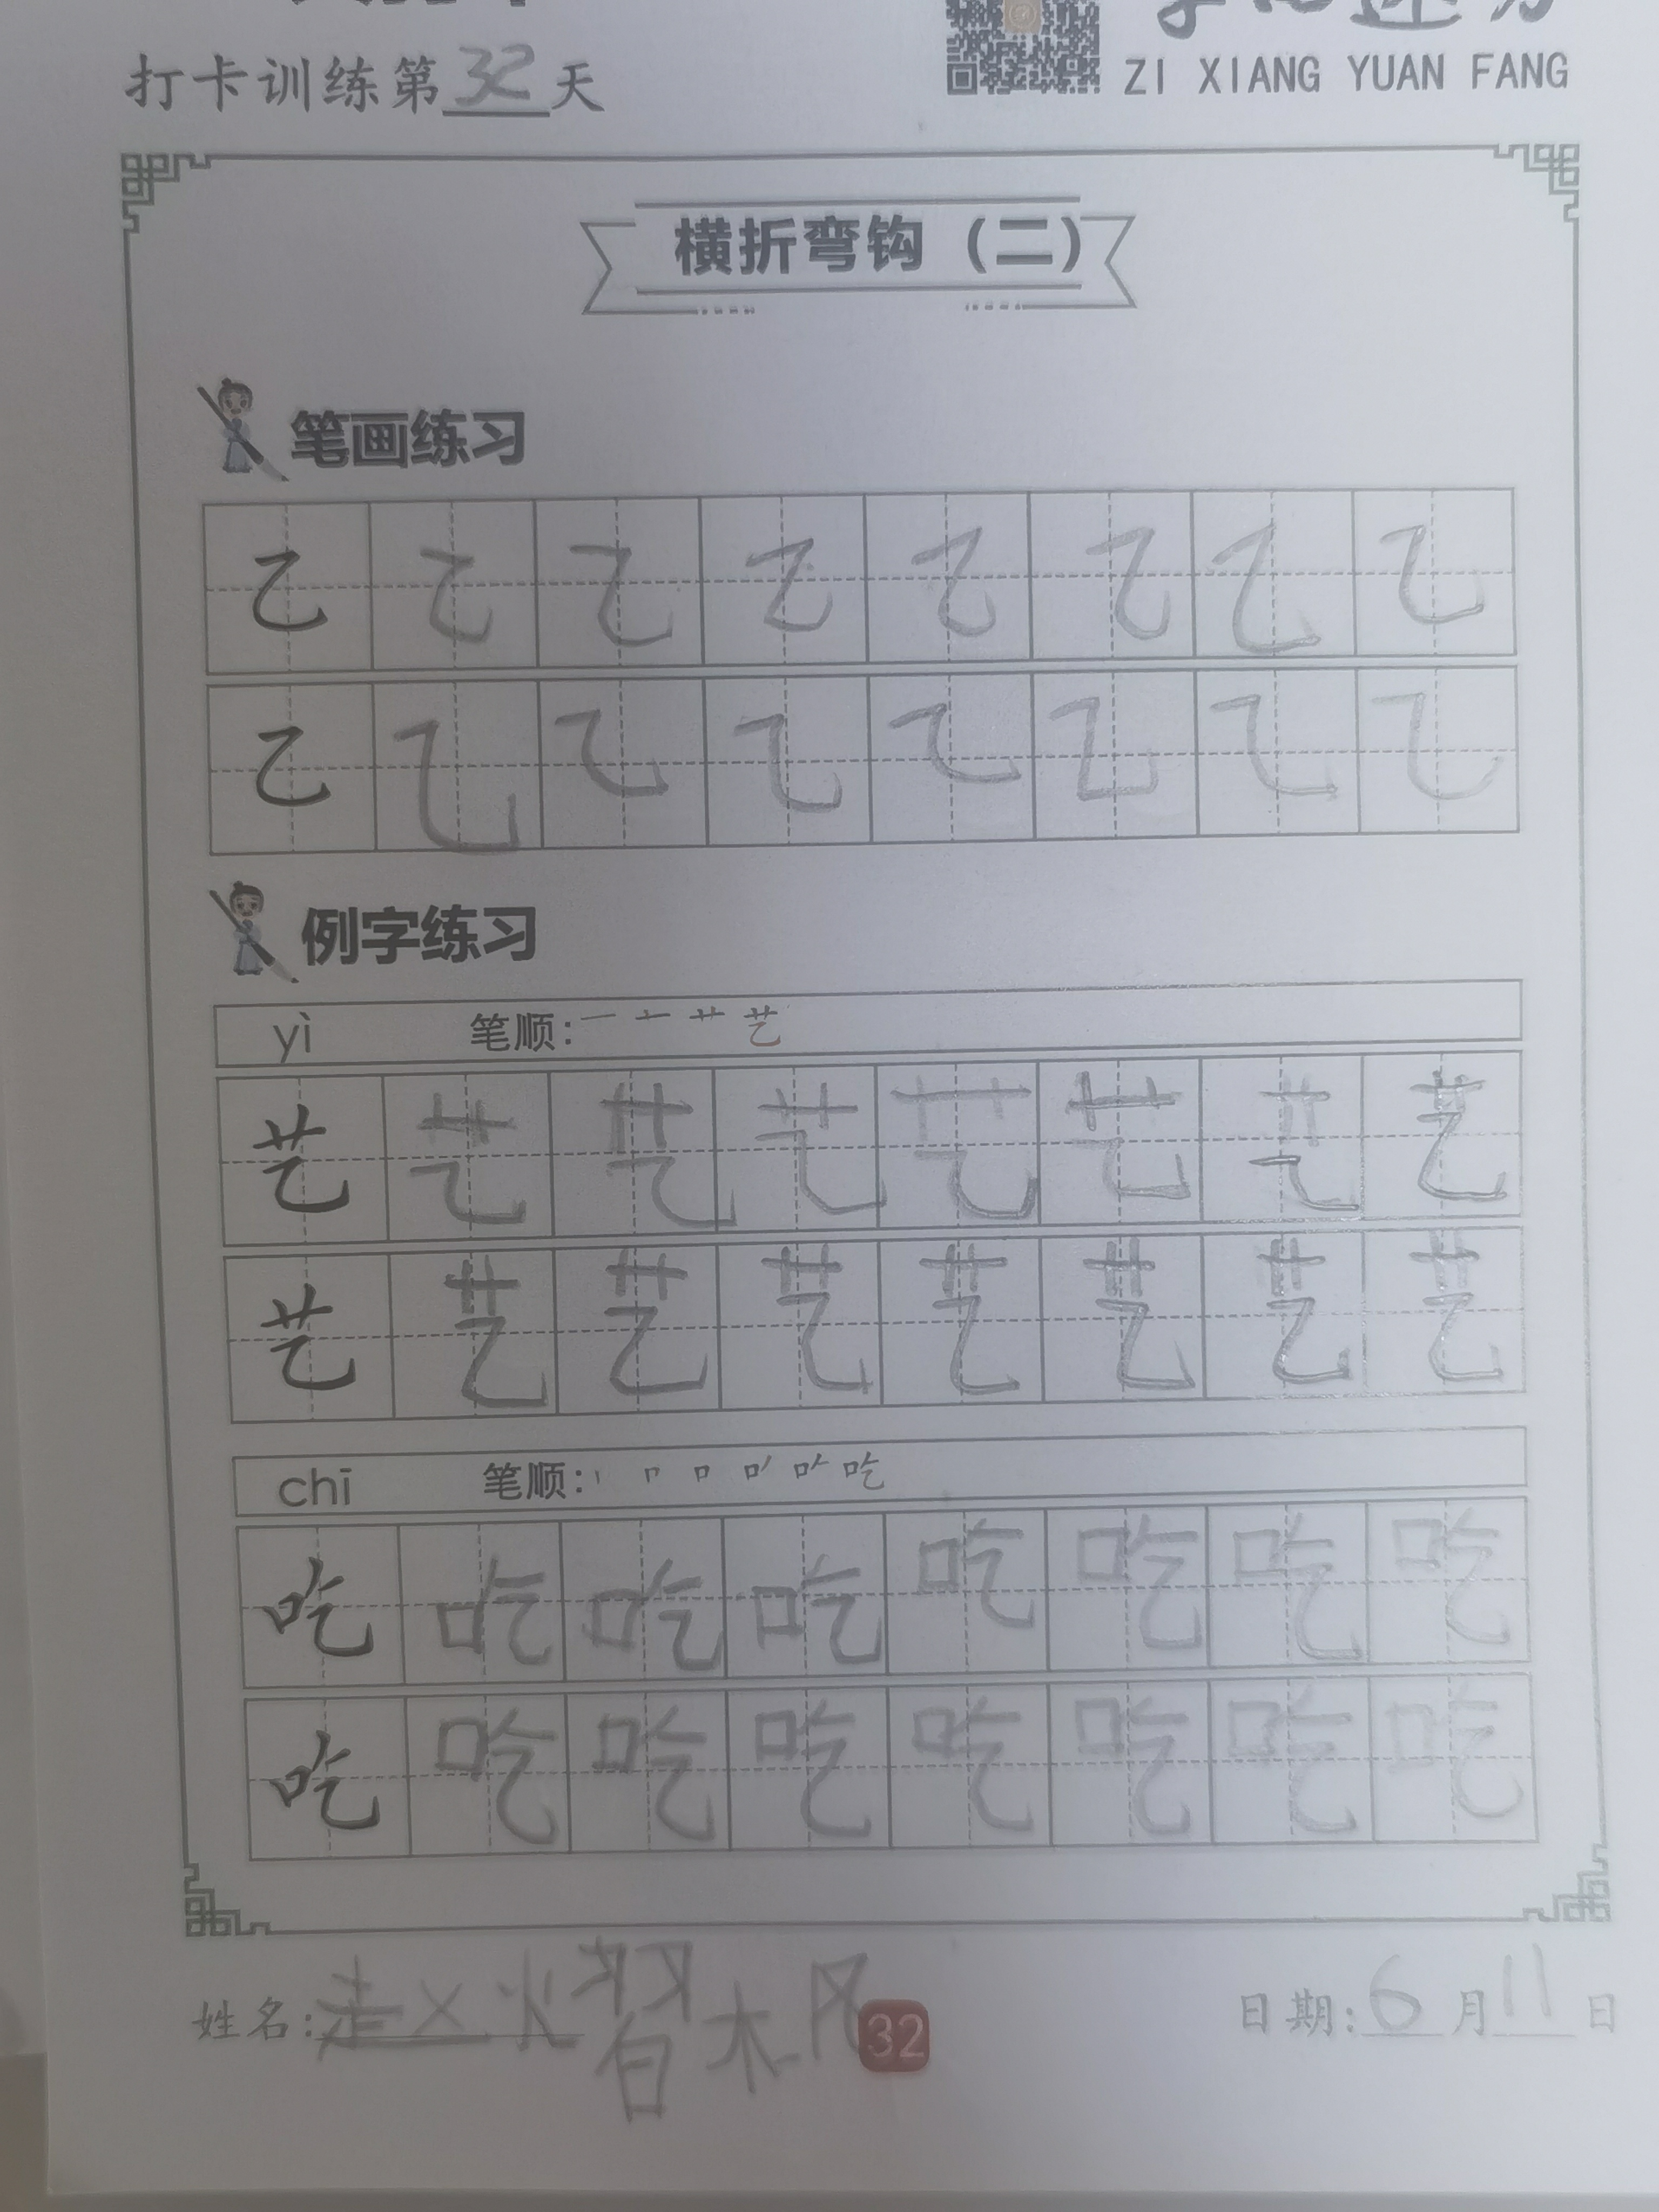 打卡训练第32天
ZI XIANG YUAN FANG
横折弯钩（二）
笔画练习
乙 乙 乙 乙 乙 乙 乙 乙
乙 乙 乙 乙 乙 乙 乙 乙
例字练习
yì 笔顺：艺
艺 艺 艺 艺 艺 艺 艺 艺
艺 艺 艺 艺 艺 艺 艺 艺
chī 笔顺：吃
吃 吃 吃 吃 吃 吃 吃 吃
吃 吃 吃 吃 吃 吃 吃 吃
姓名：赵火習木风 32 日期：6月11日